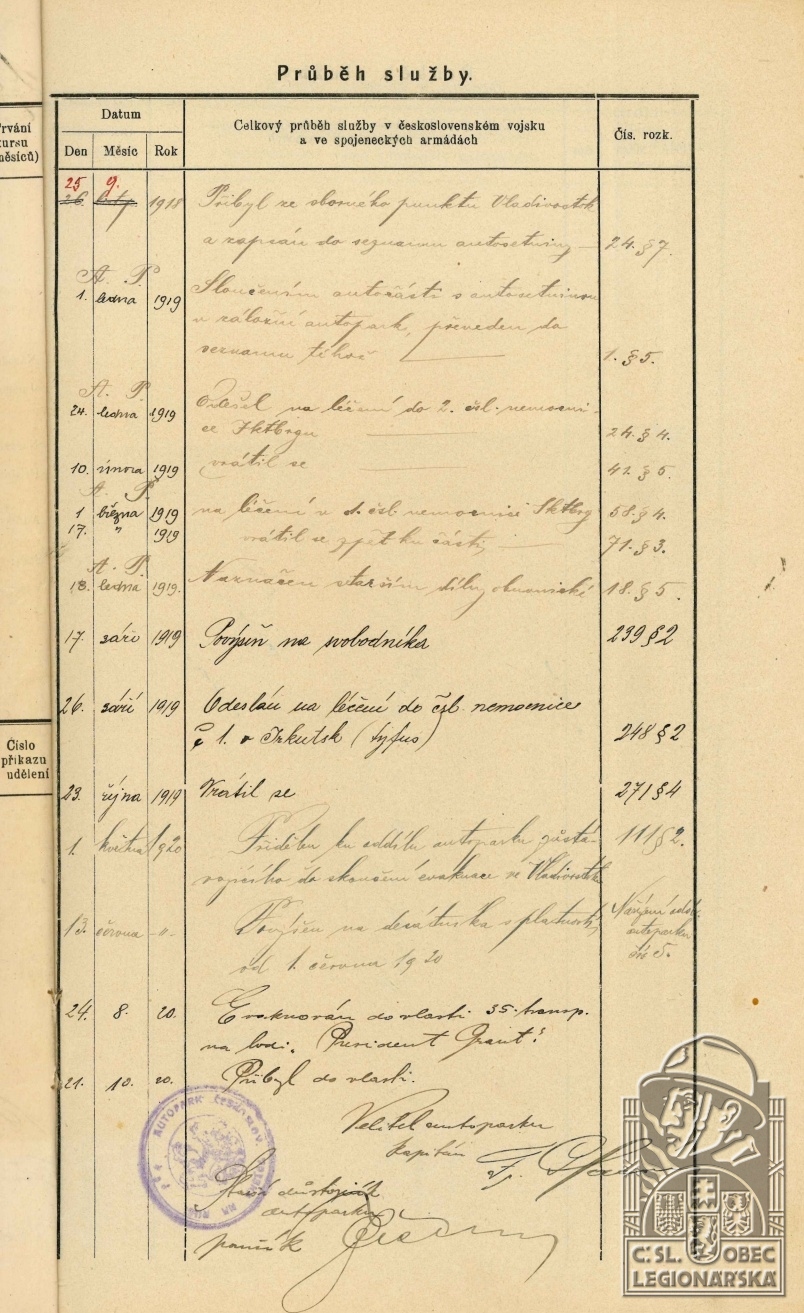 Průběh služby.
Trvání
kursu
(měsíců)
Datum
Den Měsíc Rok
Celkový průběh služby v československém vojsku
a ve spojeneckých armádách
Čís. rozk.
25 9.
26. 1918 Přibyl ze sborného punktu Vladivostok
a zapsán do seznamu autosetniny 24. § 7.
A. P.
1. ledna 1919 Sloučením autočásti s autosetninou
v záložní autopark, převeden do
seznamu téhož 1. § 5.
A. P.
24. ledna 1919 Odešel na léčení do 2. čsl. nemocni-
ce Jktbrgu 24. § 4.
10. února 1919 vrátil se 41. § 5.
A. P.
1 března 1919 na léčení v 1. čsl. nemocnici 58. § 4.
17. " 1919 vrátil se zpět ku části 71. § 3.
A. P.
18. ledna 1919. Naznačen starším dílny 18. § 5.
17. září 1919 Povýšen na svobodníka 239 § 2
26. září 1919 Odeslán na léčení do čsl. nemocnice
č 1. v Irkutsk (tyfus) 248 § 2
Číslo
příkazu
o udělení
23. října 1919 Vrátil se 271 § 4
1. května 1920 Přidělen ku oddílu autoparku zůstá-
vajícího do skončení evakuace ve Vladivostok 111 § 2.
13. června -"- Povýšen na desátníka s platností
od 1. června 1920
Nařízení
autoparku
čís 5.
24. 8. 20. Evakuován do vlasti 35. transp.
na lodi „President Grant"
21. 10. 20. Přibyl do vlasti.
Velitel autoparku
kapitán
AUTOPARK
autoparku
ČSL. OBEC
LEGIONÁŘSKÁ